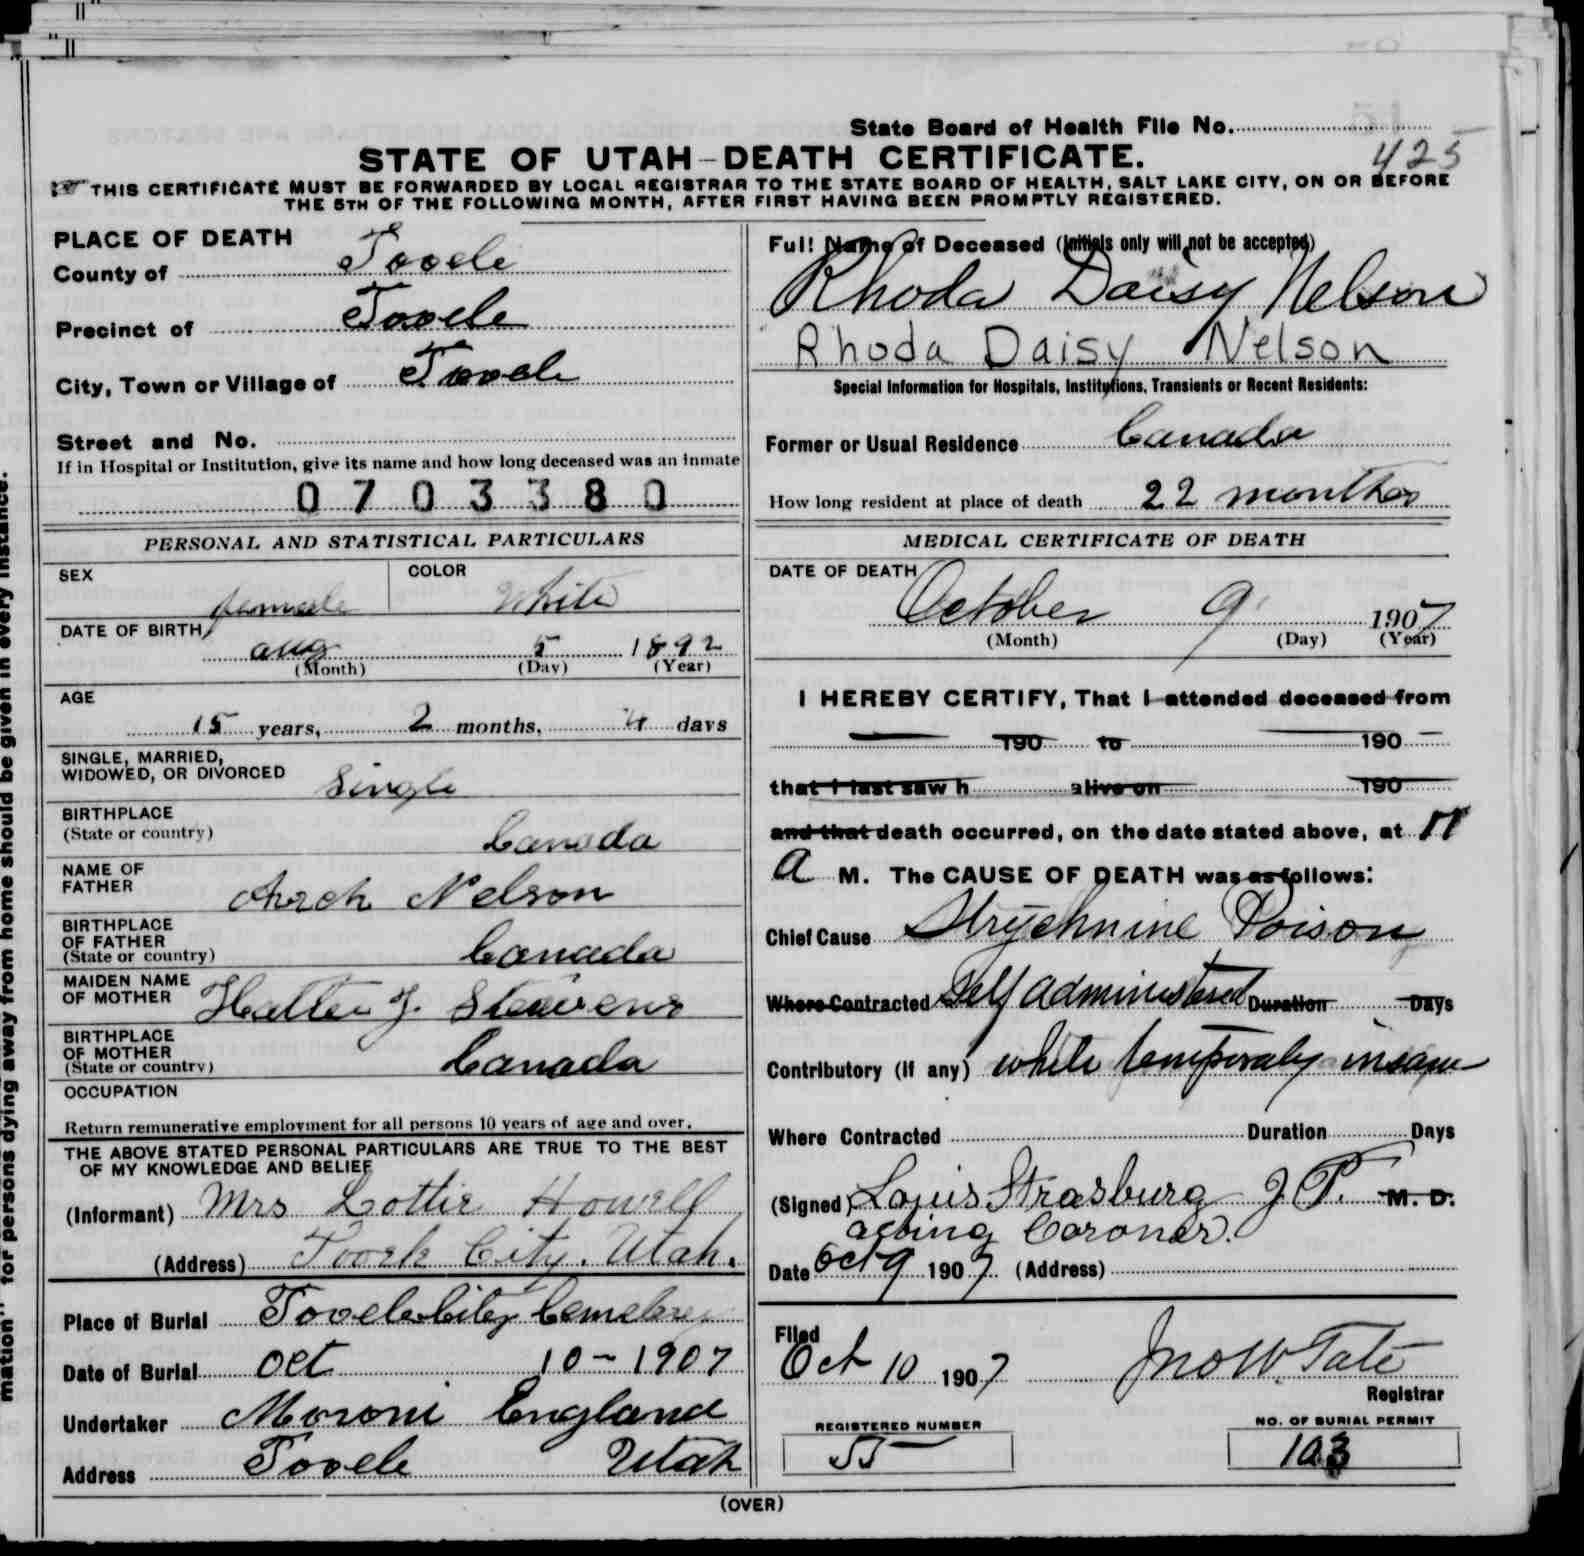 State Board of Health File No.
425
STATE OF UTAH—DEATH CERTIFICATE.
THIS CERTIFICATE MUST BE FORWARDED BY LOCAL REGISTRAR TO THE STATE BOARD OF HEALTH, SALT LAKE CITY, ON OR BEFORE
THE 5TH OF THE FOLLOWING MONTH, AFTER FIRST HAVING BEEN PROMPTLY REGISTERED.
PLACE OF DEATH
County of Tooele
Precinct of Tooele
City, Town or Village of Tooele
Street and No.
If in Hospital or Institution, give its name and how long deceased was an inmate
0703380
PERSONAL AND STATISTICAL PARTICULARS
SEX female COLOR White
DATE OF BIRTH
aug 5 1892
(Month) (Day) (Year)
AGE
15 years, 2 months, 4 days
SINGLE, MARRIED,
WIDOWED, OR DIVORCED Single
BIRTHPLACE
(State or country) Canada
NAME OF
FATHER Arch Nelson
BIRTHPLACE
OF FATHER
(State or country) Canada
MAIDEN NAME
OF MOTHER Hattie J. Steavens
BIRTHPLACE
OF MOTHER
(State or country) Canada
OCCUPATION
Return remunerative employment for all persons 10 years of age and over.
THE ABOVE STATED PERSONAL PARTICULARS ARE TRUE TO THE BEST
OF MY KNOWLEDGE AND BELIEF
(Informant) Mrs Lottie Howell
(Address) Tooele City, Utah.
Place of Burial Tooele City Cemetery
Date of Burial Oct 10 - 1907
Undertaker Moroni England
Address Tooele Utah
Full Name of Deceased (Initials only will not be accepted)
Rhoda Daisy Nelson
Rhoda Daisy Nelson
Special Information for Hospitals, Institutions, Transients or Recent Residents:
Former or Usual Residence Canada
How long resident at place of death 22 months
MEDICAL CERTIFICATE OF DEATH
DATE OF DEATH
October 9 1907
(Month) (Day) (Year)
I HEREBY CERTIFY, That I attended deceased from
190 to 190
that I last saw h alive on 190
and that death occurred, on the date stated above, at 11
a M. The CAUSE OF DEATH was as follows:
Chief Cause Strychnine Poison
Where Contracted Self administered Duration Days
Contributory (if any) while temporaly insane
Where Contracted Duration Days
(Signed) Louis Strasburg J.P. M. D.
acting Coroner.
Date Oct 9 1907 (Address)
Filed
Oct 10 1907 Jno W. Tate
Registrar
REGISTERED NUMBER
55
NO. OF BURIAL PERMIT
103
(OVER)
mation" for persons dying away from home should be given in every instance.